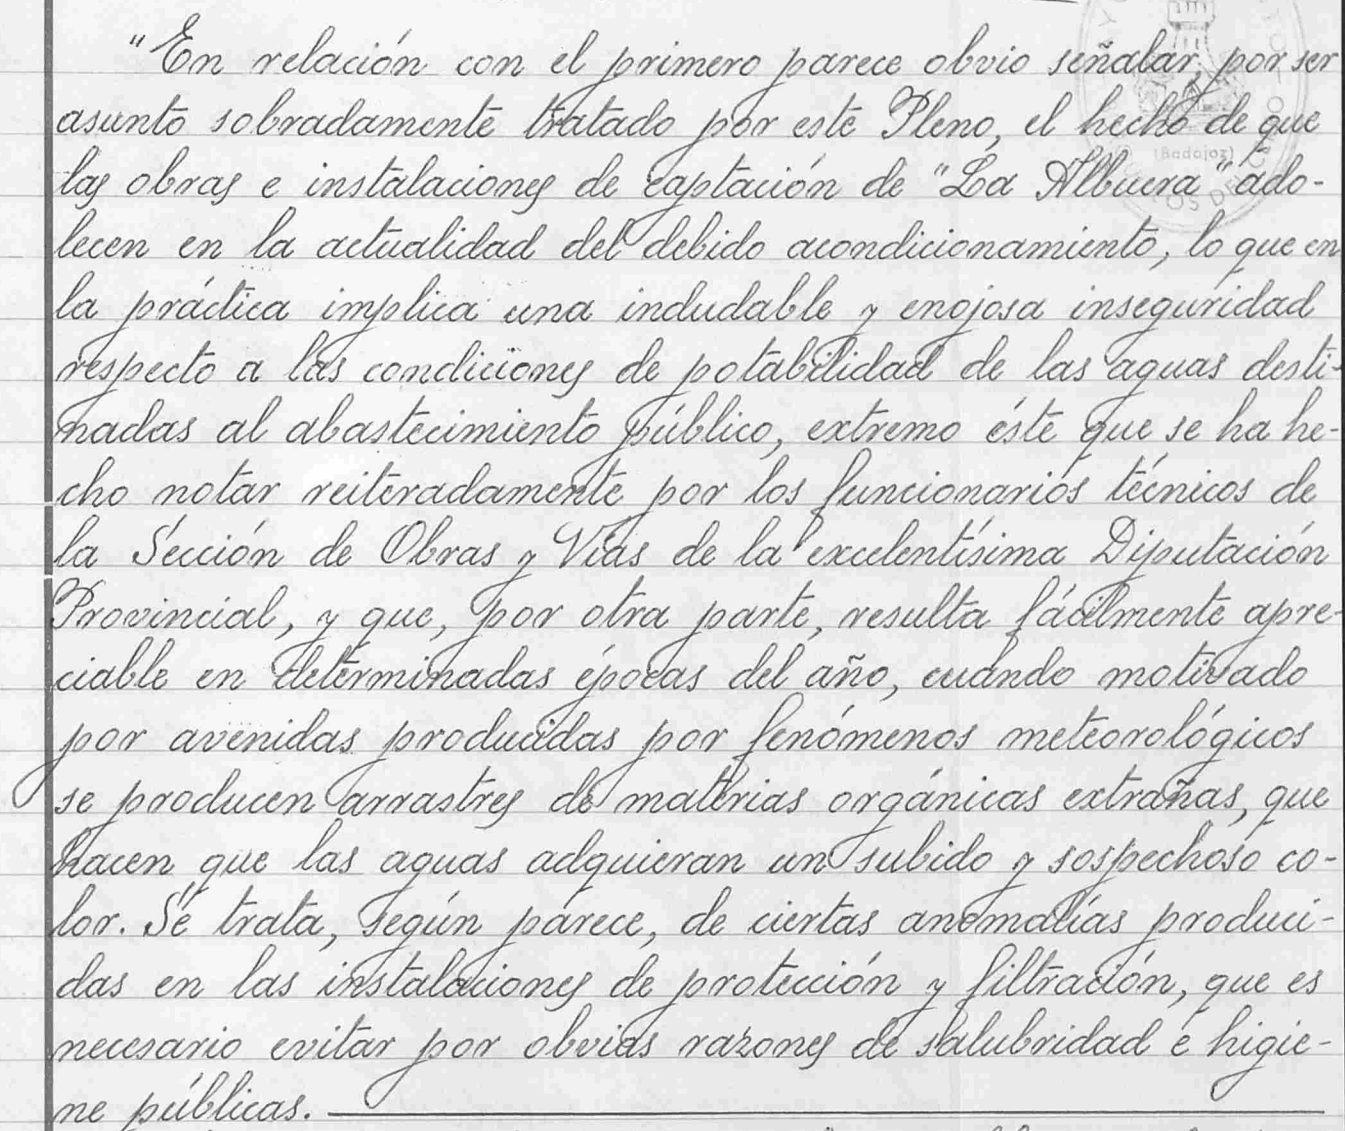 "En relación con el primero parece obvio señalar, por ser
asunto sobradamente tratado por este Pleno, el hecho de que
las obras e instalaciones de captación de "La Albuera" ado-
lecen en la actualidad del debido acondicionamiento, lo que en
la práctica implica una indudable y enojosa inseguridad
respecto a las condiciones de potabilidad de las aguas desti-
nadas al abastecimiento público, extremo éste que se ha he-
cho notar reiteradamente por los funcionarios técnicos de
la Sección de Obras y Vías de la excelentísima Diputación
Provincial, y que, por otra parte, resulta fácilmente apre-
ciable en determinadas épocas del año, cuando motivado
por avenidas producidas por fenómenos meteorológicos
se producen arrastres de materias orgánicas extrañas, que
hacen que las aguas adquieran un subido y sospechoso co-
lor. Se trata, según parece, de ciertas anomalías produci-
das en las instalaciones de protección y filtración, que es
necesario evitar por obvias razones de salubridad e higie-
ne públicas.
(Badajoz)